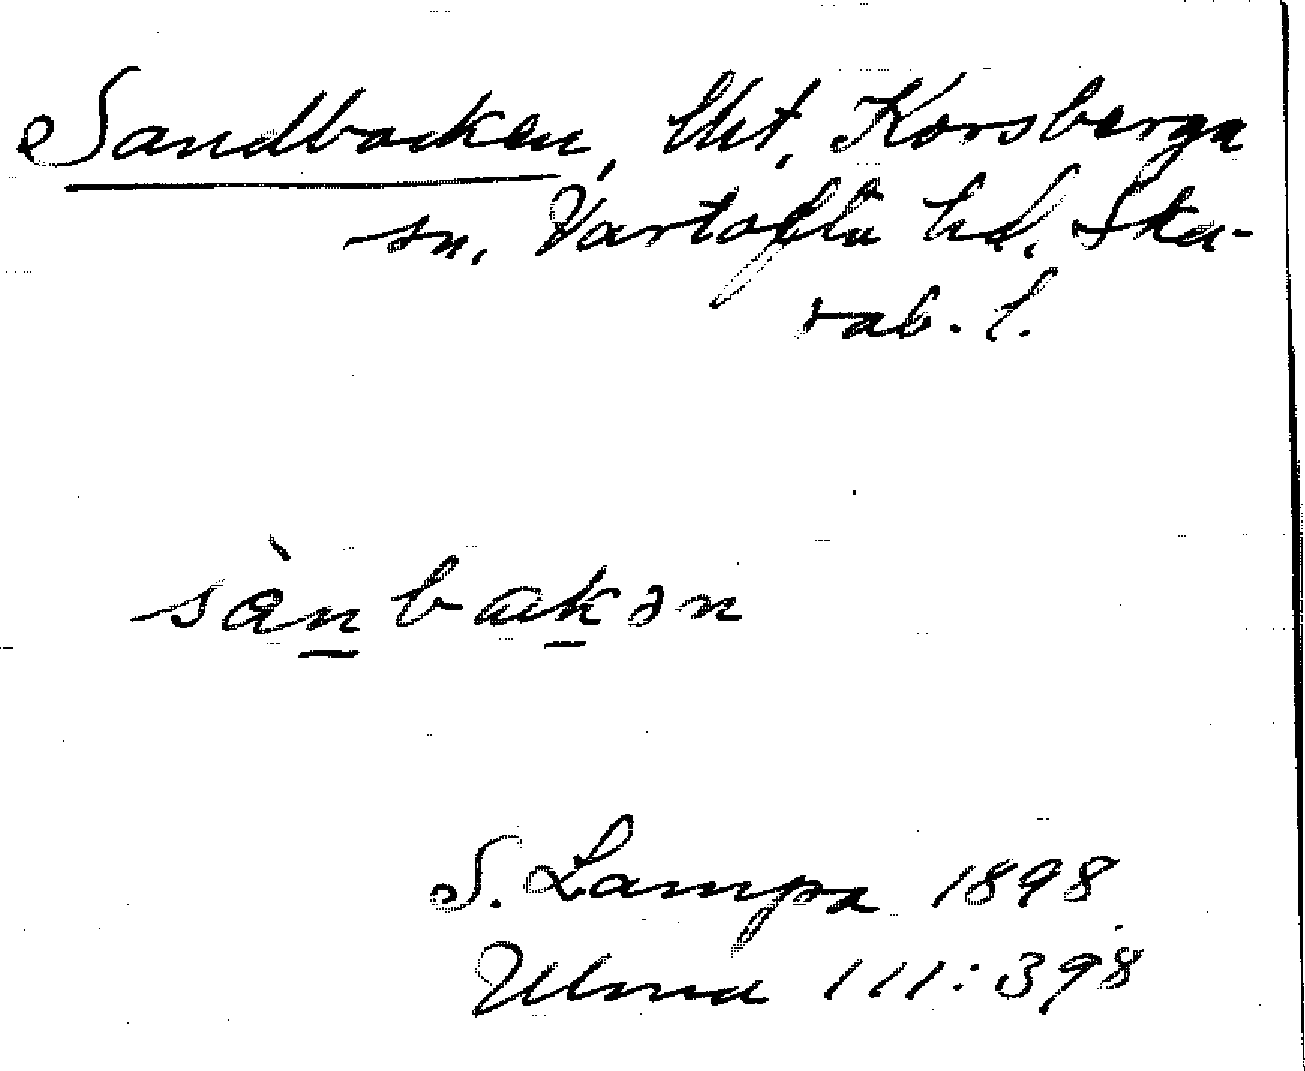 Sandbacken, lht, Korsberga
sn, Vartofta hd, Ska-
rab. l.
sànbakən
S. Lampa 1898
Ulma 111:398